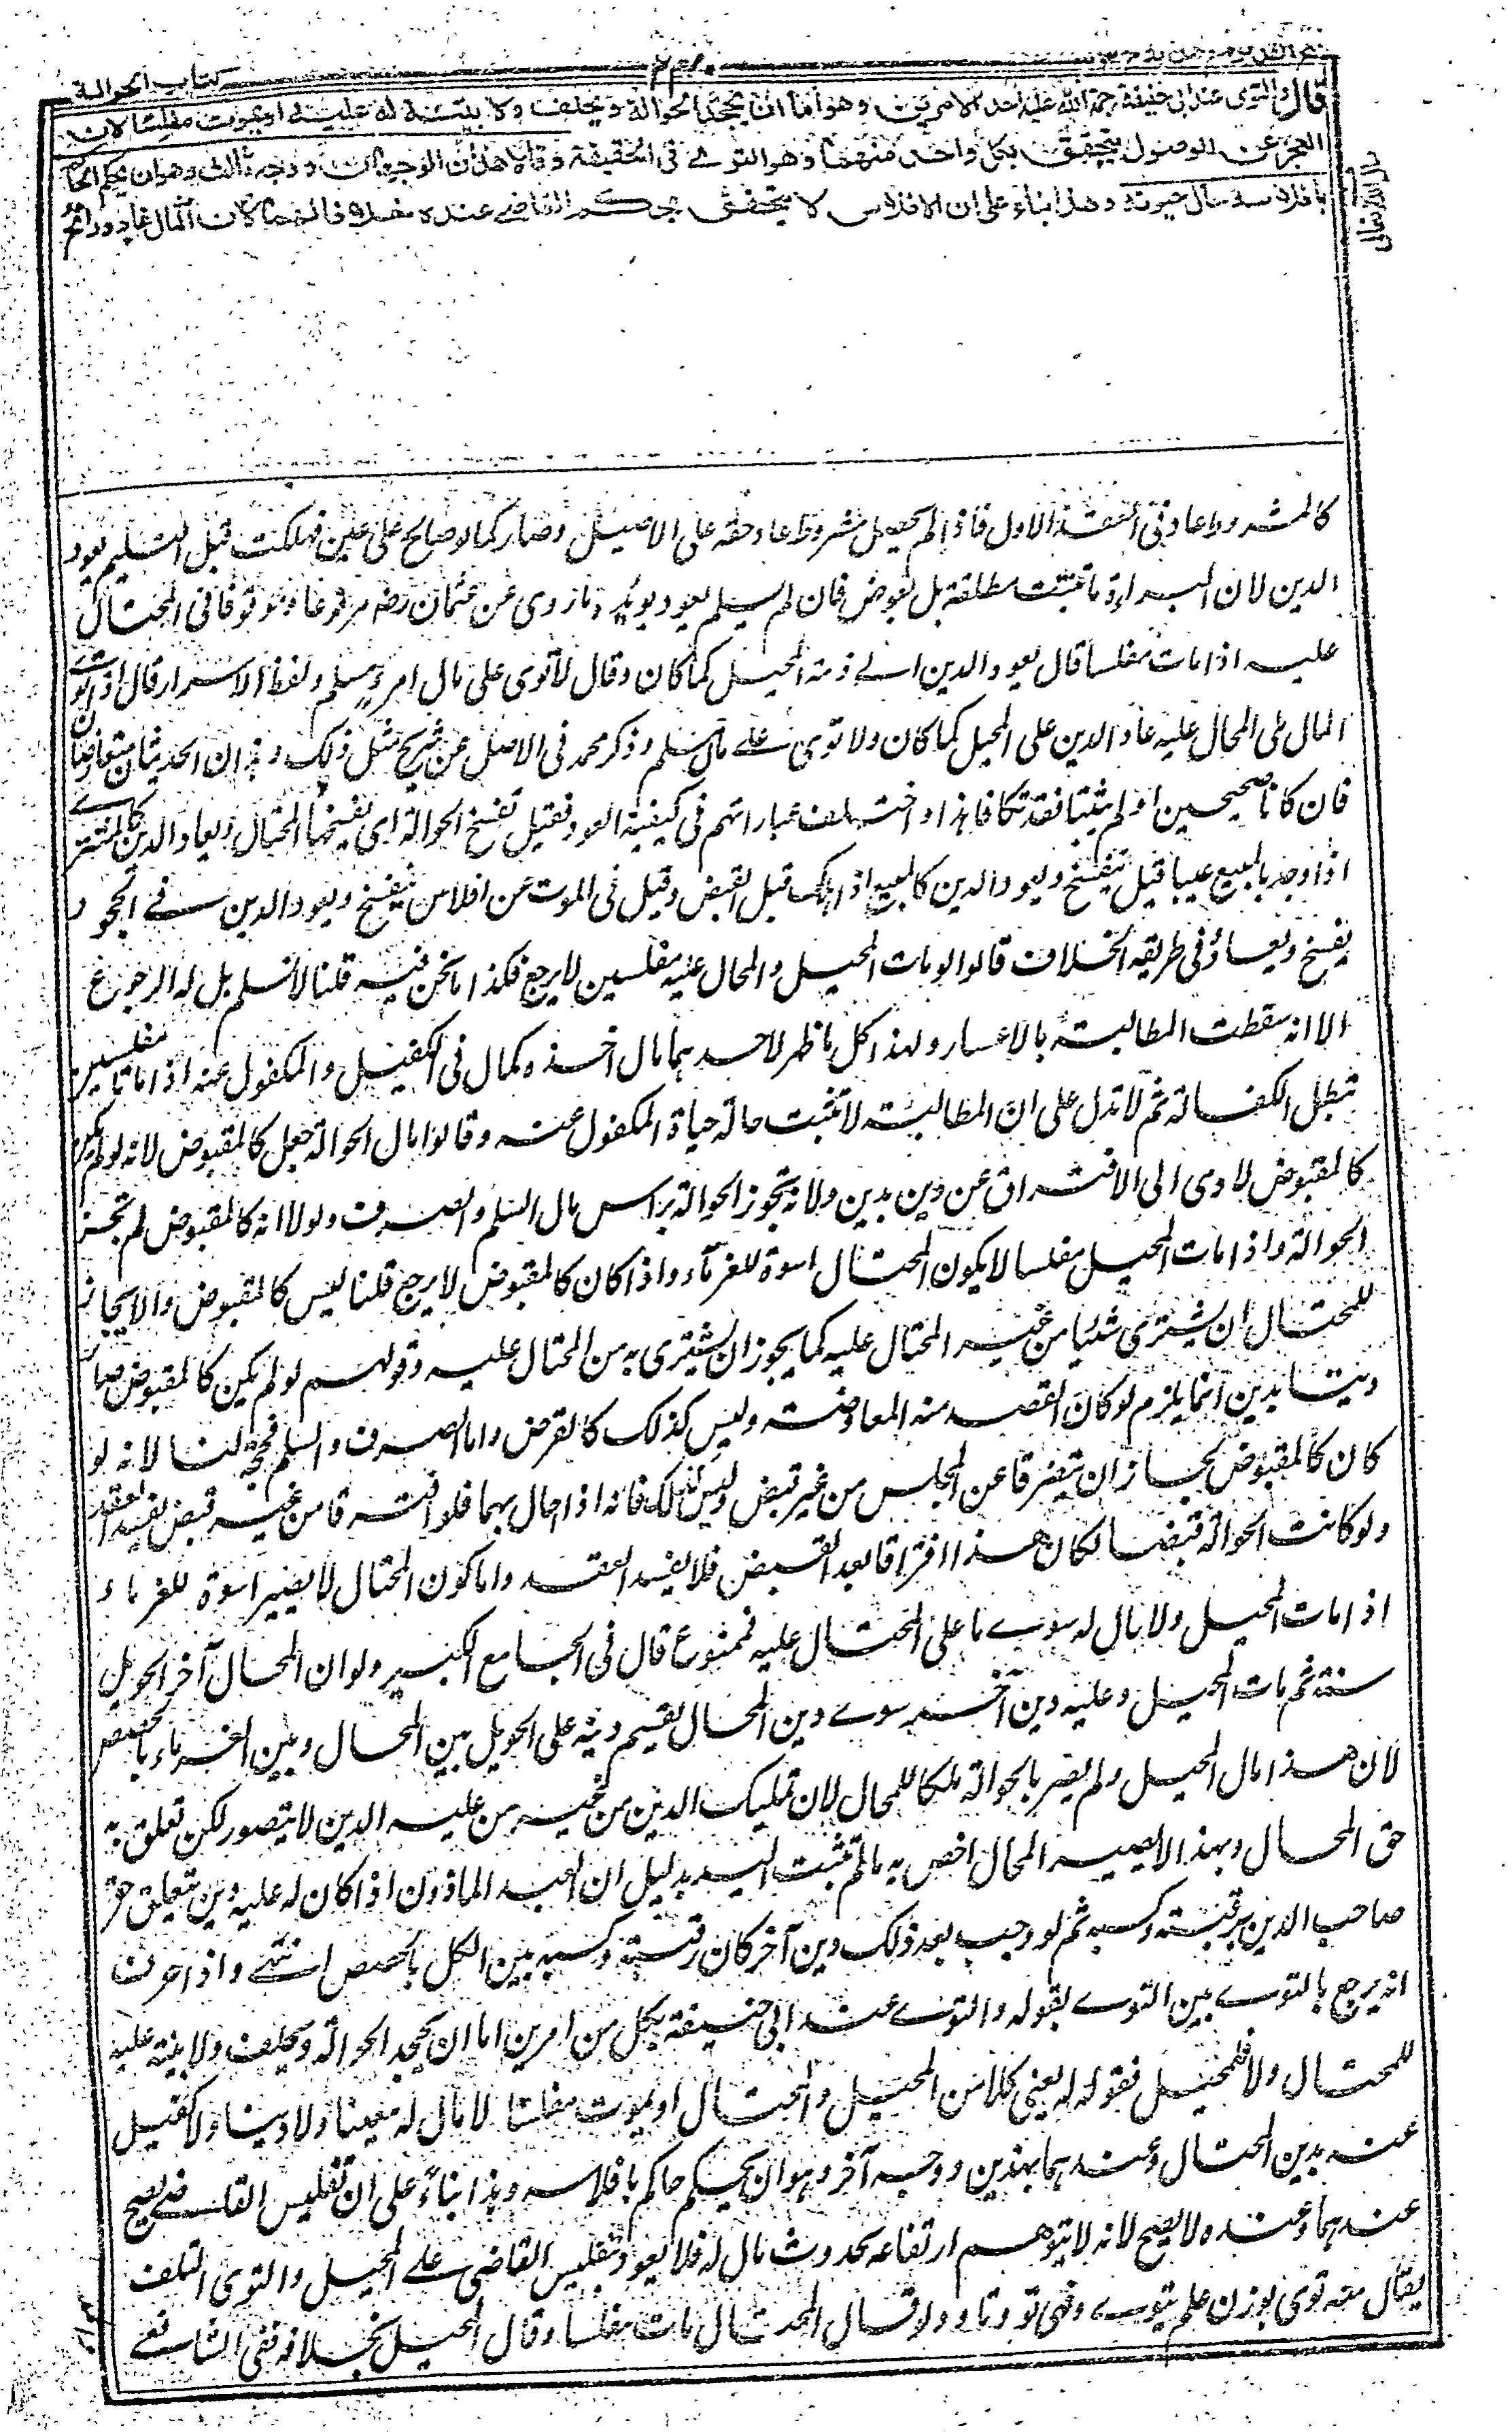 كتاب الحوالة
قال والتوى عند ابي حنيفة رحمة الله عليه احد الامرين وهو اما ان يجحد الحوالة ويحلف ولا بينة له عليه او يموت مفلسا لان
العجز عن الوصول يتحقق بكل واحد منهما وهو التوى في الحقيقة وقالا هذان الوجهان ووجه ثالث وهو ان يحكم الحاكم
بافلاسه حال حيوته وهذا بناء على ان الافلاس لا يتحقق بحكم القاضي عنده خلافا لهما لان المال غاد ورائح
كالمشروط عادة في العقد الاول فاذا لم يحصل مشروطه عاد حقه على الاصيل وصار كما لو صالح على عين فهلكت قبل التسليم يعود
الدين لان البراءة ما ثبتت مطلقة بل بعوض فان لم يسلم يعود يؤيده ما روى عن عثمان رضه مرفوعا وموقوفا في المحتال
عليه اذا مات مفلسا قال يعود الدين الى ذمة المحيل كما كان وقال لا توى على مال امرء مسلم ولفظ الاسرار قال اذا توى
المال على المحال عليه عاد الدين على المحيل كما كان ولا توى على مال مسلم وذكر محمد في الاصل عن شريح مثل ذلك وهذان الحديثان متعارضان
فان كانا صحيحين او لم يثبتا فقد تكافا هذا واختلف عباراتهم في كيفية العود فقيل تفسخ الحوالة اى يفسخها المحتال ويعاد الدين كالمشترى
اذا وجد بالمبيع عيبا قيل تنفسخ ويعود الدين كالمبيع اذا هلك قبل القبض وقيل في الموت عن افلاس ينفسخ ويعود الدين وفي الجحود
يفسخ ويعاد وفي طريقة الخلاف قالوا لو مات المحيل والمحال عليه مفلسين لا يرجع فكذا ما نحن فيه قلنا لا نسلم بل له الرجوع
الا انه سقطت المطالبة بالاعسار ولهذا كل ما ظهر لاحدهما مال اخذه وكمال في الكفيل والمكفول عنه اذا ماتا مفلسين
تبطل الكفالة ثم لا تدل على ان المطالبة لا تثبت حالة حياة المكفول عنه وقالوا مال الحوالة جعل كالمقبوض لانه لو لم يكن
كالمقبوض لادى الى الافتراق عن دين بدين ولانه تجوز الحوالة براس مال السلم والصرف ولولا انه كالمقبوض لم تجز
الحوالة واذا مات المحيل مفلسا لا يكون المحتال اسوة للغرماء واذا كان كالمقبوض لا يرجع قلنا ليس كالمقبوض والا لجاز
للمحتال ان يشترى شيئا من غير المحتال عليه كما يجوز ان يشترى به من المحتال عليه وقولهم لو لم يكن كالمقبوض صار
دينا بدين انما يلزم لو كان القصد منه المعاوضة وليس كذلك كالقرض واما الصرف والسلم فحجة لنا لانه لو
كان كالمقبوض لجاز ان يتفرقا عن المجلس من غير قبض وليس كذلك فانه اذا احال بهما فلو افترقا من غير قبض يفسد العقد
ولو كانت الحوالة قبضا لكان هذا افتراقا بعد القبض فلا يفسد العقد واما كون المحتال لا يصير اسوة للغرماء
اذا مات المحيل ولا مال له سوى ما على المحتال عليه فممنوع قال في الجامع الكبير ولو ان المحال آخر الحويل
سنة ثم مات المحيل وعليه دين آخر سوى دين المحال يقسم دينه على الحويل بين المحال وبين الغرماء بالحصص
لان هذا مال المحيل ولم يصر بالحوالة ملكا للمحال لان تمليك الدين من غير من عليه الدين لا يتصور لكن تعلق به
حق المحال وبهذا لا يصير المحال اخص به ما لم تثبت اليد بدليل ان العبد الماذون اذا كان له عليه دين يتعلق حق
صاحب الدين برقبته وكسبه ثم لو وجب بعد ذلك دين آخر كان رقبته وكسبه بين الكل بالحصص انتهى واذا عرف
انه يرجع بالتوى بين التوى بقوله والتوى عند ابي حنيفة بكل من امرين اما ان يجحد الحوالة ويحلف ولا بينة عليه
للمحتال ولا للمحيل فقوله له يعنى كلا من المحيل والمحتال او يموت مفلسا لا مال له معينا ولا دينا ولا كفيل
عنه بدين المحتال وعندهما بهذين ووجه آخر وهو ان يحكم حاكم بافلاسه وهذا بناءً على ان تفليس القاضي يصح
عندهما وعنده لا يصح لانه لا يتوهم ارتفاعه بحدوث مال له فلا يعود بتفليس القاضي على المحيل والتوى التلف
يقال منه توى بوزن علم يتوى وهى تو وتاو ولو قال المحتال مات مفلسا وقال المحيل بخلافه ففى الشافعى